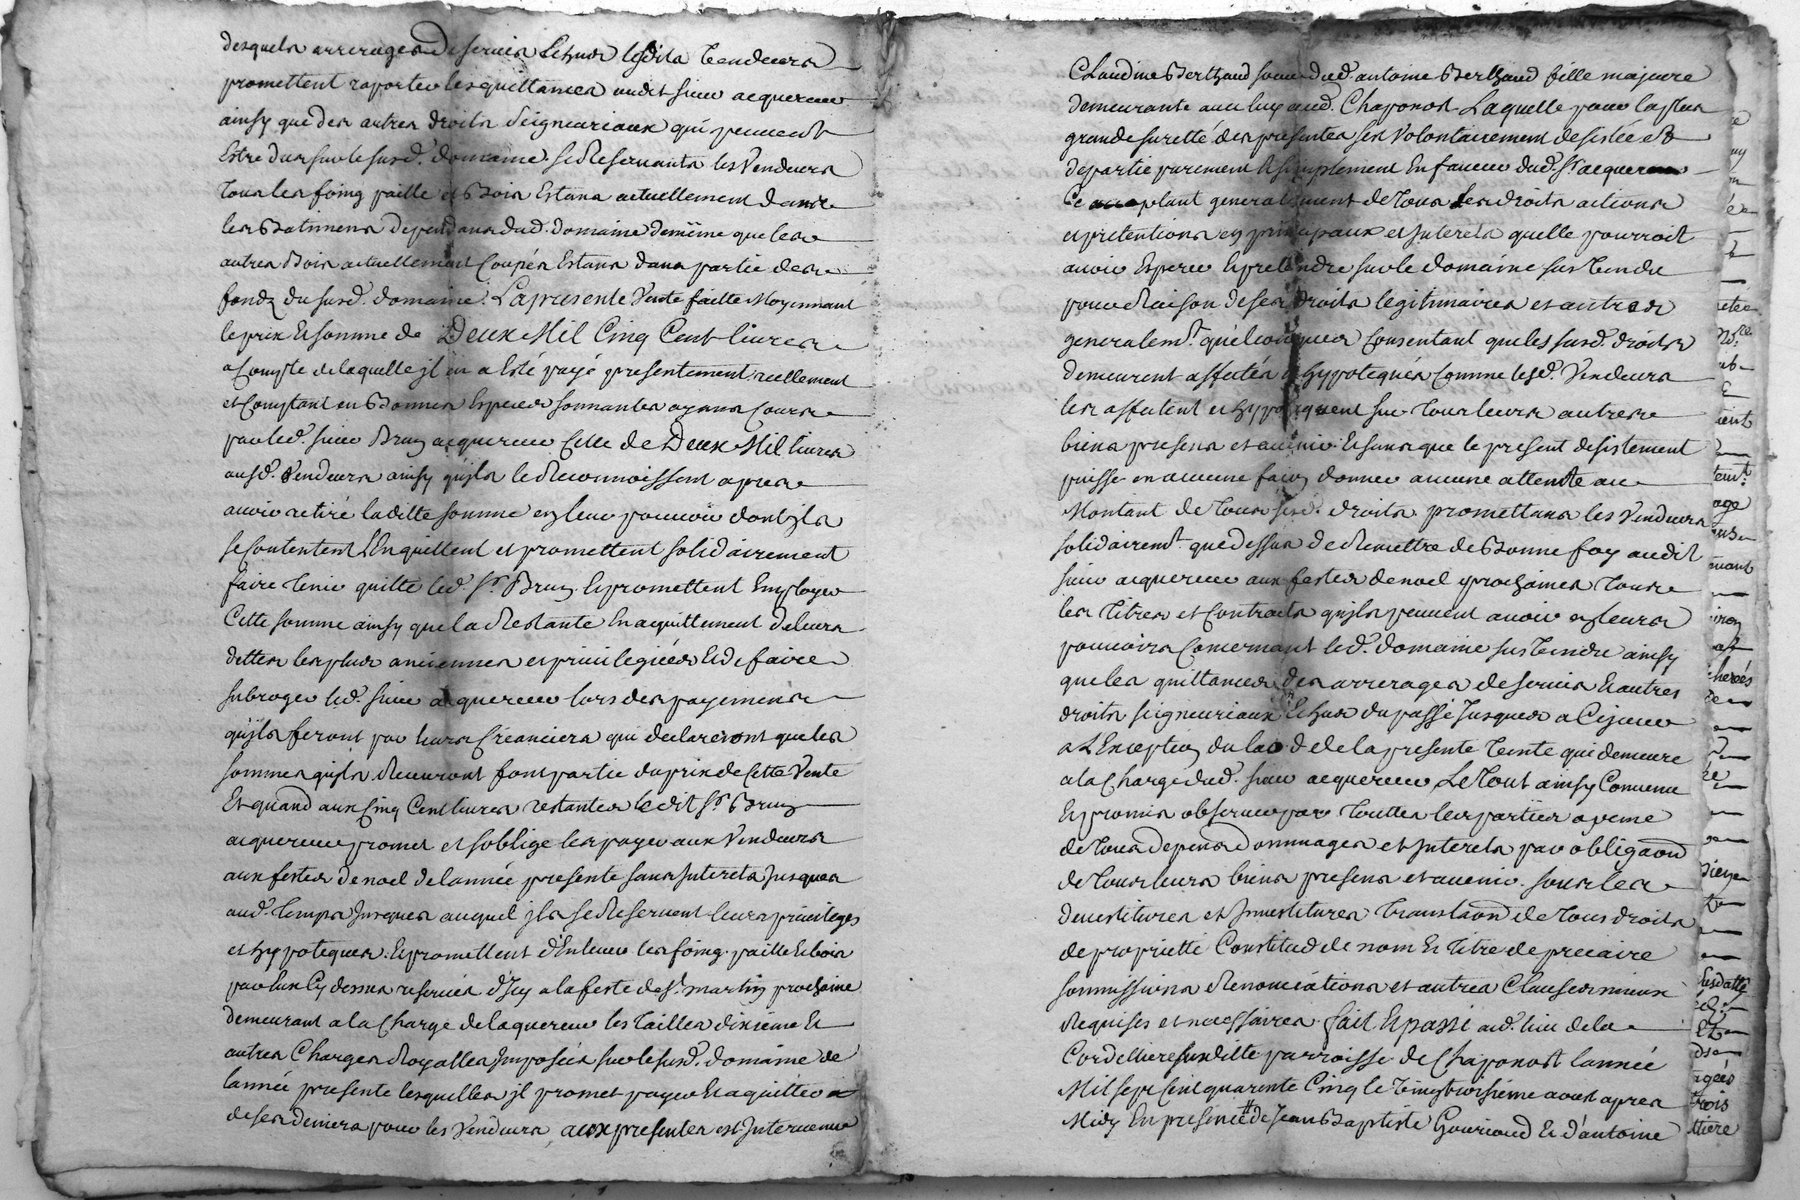 desquels arrerages de servis Echus lesdits Vendeurs
promettent raporter les quittances audit sieur acquereur
ainsy que des autres droits seigneuriaux qui peuvent
Estre dus sur le susd. domaine. se Reservants les Vendeurs
tous les foing paille et Bois Estans actuellement dans
les Batimens dependans dud. domaine de meme que les
autres Bois actuellement Coupés Estans dans partie des
fondz du susd. domaine. La presente Vente faitte Moyennant
le prix Et somme de Deux Mil Cinq Cent livres
a Compte de laquelle jl en a Esté payé presentement reellement
et Comptant en Bonnes Especes sonnantes ayans Cours
par led. sieur Brun acquereur Celle de Deux Mil livres
ausd. Vendeurs ainsy qujls le Reconnoissent apres
avoir retiré laditte somme en leur pouvoir dont jls
se Contentent L'En quittent et promettent solidairement
faire tenir quitte led. Sr. Brun Et promettent Employer
Cette somme ainsy que la Restante En aquittement de leurs
dettes les plus anciennes et privilegiées Et de faire
subroger led. sieur acquereur lors des payemens
qujls feront par leurs Creanciers qui declareront que les
sommes qujls Recevront font partie du prix de Cette Vente
Et quand aux Cinq Cent livres restantes ledit Sr. Brun
acquereur promet et s'oblige les payer aux Vendeurs
aux festes de noel de l'année presente sans Interets Jusques
aud. temps Jusques auquel jls se Reservent leurs privileges
et hypoteques. Et promettent d'Enlever les foing paille Et bois
par Eux Cy dessus reservés d'Icy a la feste de St. martin prochaine
demeurant a la Charge de l'acquereur les tailles dixieme Et
autres Charges Royalles Imposées sur le susd. domaine de
l'année presente lesquelles jl promet payer Et aquitter
de ses deniers pour les Vendeurs, aux presentes est Intervenue
Claudine Berthaud soeur dud. antoine Berthaud fille majeure
demeurante avec luy aud. Chaponost Laquelle pour la plus
grande suretté des presentes s'es Volontairement desistée et
departie purement Et simplement En faveur dud. Sr. acquereur
Ce acceptant generalement de tous les droits actions
et pretentions en principaux et Interets quelle pourroit
avoir Esperer Et pretendre sur le domaine sus Vendu
pour Raison de ses droits legitimaires et autres
generalemt. quelconques Consentant que les susd. droits
demeurent affectés Et hypotequés Comme lesd. Vendeurs
les affectent et hypotequent sur tous leurs autres
biens presens et avenir. Et sans que le present desistement
puisse en aucune facon donner aucune atteinte au
Montant de tous sesd. droits. promettans les Vendeurs
solidairemt. que dessus de Remettre de Bonne foy audit
sieur acquereur aux festes de noel prochaines tous
les titres et Contracts qujls peuvent avoir en leurs
pouvoirs Concernant led. domaine sus Vendu ainsy
que les quittances des arrerages de servis Et autres
droits seigneuriaux Echus du passé Jusques a Ce jour
a L'Exception du laod de la presente Vente qui demeure
a la Charge dud. sieur acquereur Le tout ainsy Convenu
Et promis observer par touttes les parties a peine
de tous depens dommages et Interets par obligaon
de tous leurs biens presens et avenir. sous les
devestitures et Investitures translaon de tous droits
de proprietté Constitud de nom Et titre de precaire
soumissions Renonciations et autres Clauses mieux
Requises et necessaires. fait Et passé aud. lieu de la
Cordelliere susditte parroisse de Chaponost l'année
Mil sept Cent quarente Cinq le Vingt troisieme aoust apres
Midy En presence de Jean Baptiste Gouriaud Et d'antoine